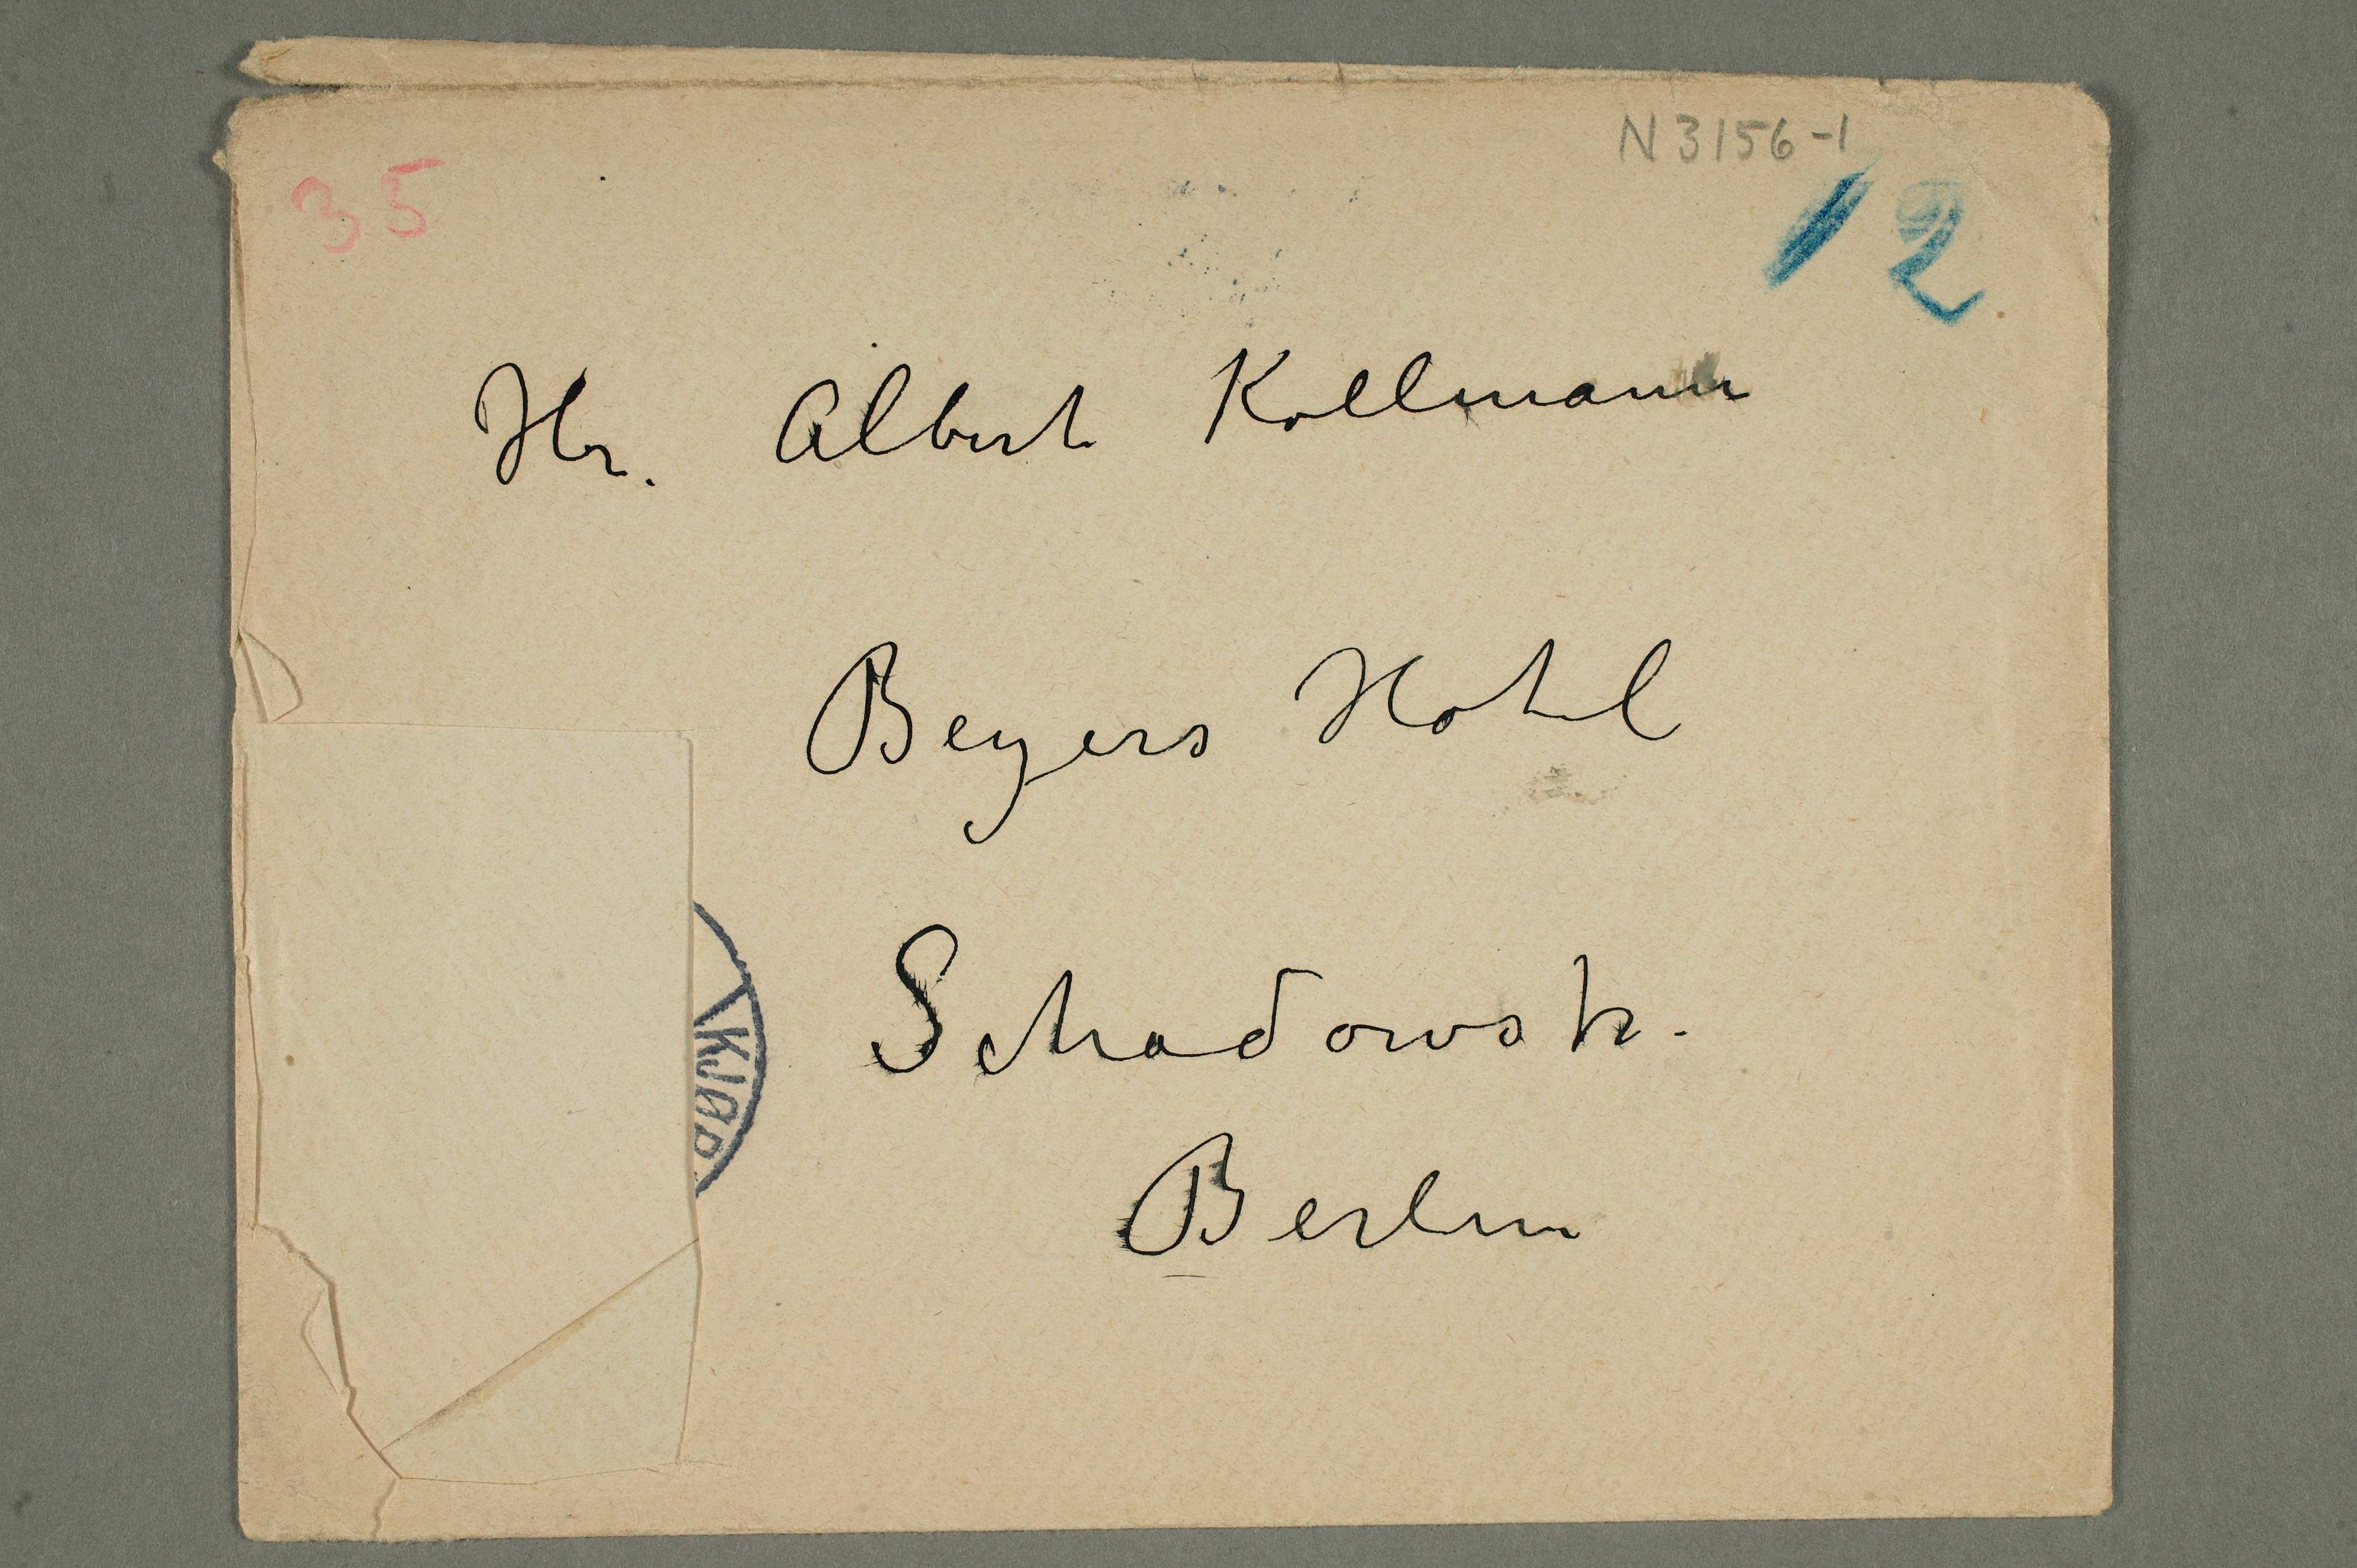 N 3156-1
35
12
Hr. Albert Kollmann
Beyers Hotel
KJØB
Schadowstr.
Berlin